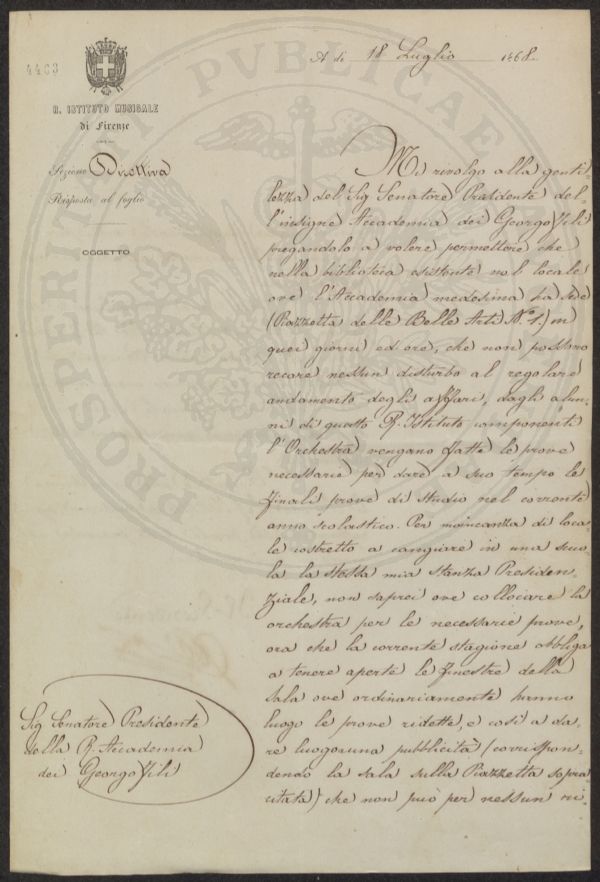 4463
A dì 18 Luglio 1868.
R. ISTITUTO MUSICALE
di Firenze
Sezione Direttiva
Risposta al foglio
OGGETTO
Mi rivolgo alla genti-
lezza del Sig Senatore Presidente del-
l'insigne Accademia dei Georgofili
pregandolo a volere permettere che
nella biblioteca esistente nel locale
ove l'Accademia medesima ha sede
(Piazzetta delle Belle Arti N.º 1.) in
quei giorni ed ore, che non possono
recare nessun disturbo al regolare
andamento degli affari, dagli alun-
ni di questo R. Istituto componenti
l'Orchestra vengano fatte le prove
necessarie per dare a suo tempo le
finali prove di studio nel corrente
anno scolastico. Per mancanza di loca-
le costretto a cangiare in una scuo-
la la stessa mia stanza Presiden-
ziale, non saprei ove collocare la
orchestra per le necessarie prove,
ora che la corrente stagione obbliga
a tenere aperte le finestre della
sala ove ordinariamente hanno
luogo le prove ridette, e così a da-
re luogo a una pubblicità (corrispon-
dendo la sala sulla Piazzetta sopra
citata) che non può per nessun ri-
Sig Senatore Presidente
della R. Accademia
dei Georgofili
PROSPERITATI PVBLICAE